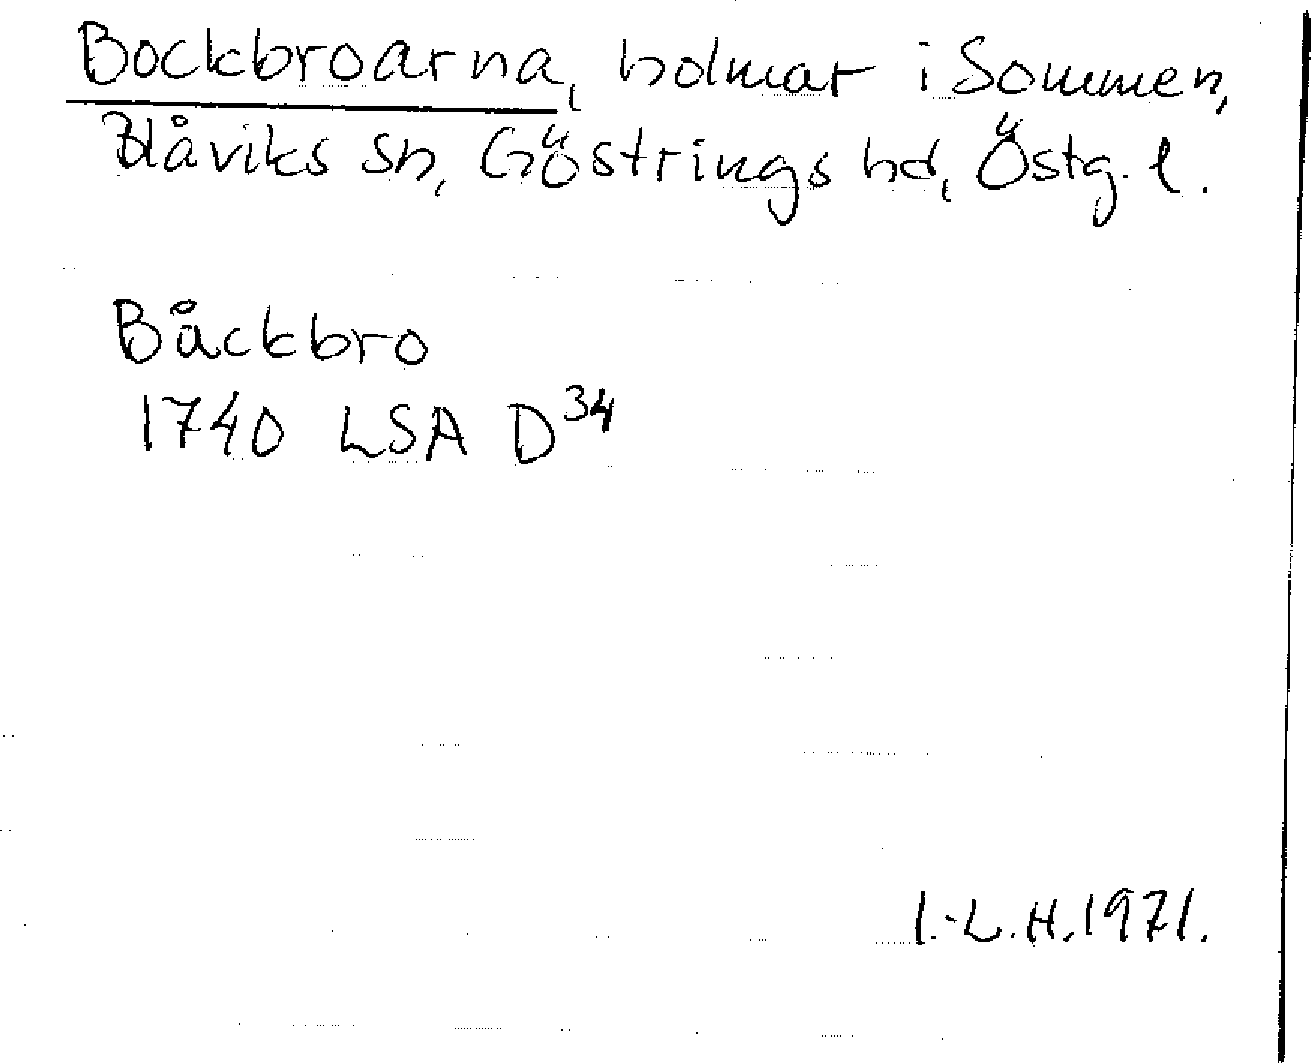 Bockbroarna, holmar i Sommen,
Blåviks sn, Göstrings hd, Östg. l.
Båckbro
1740 LSA D³⁴
I.-L.H. 1971.